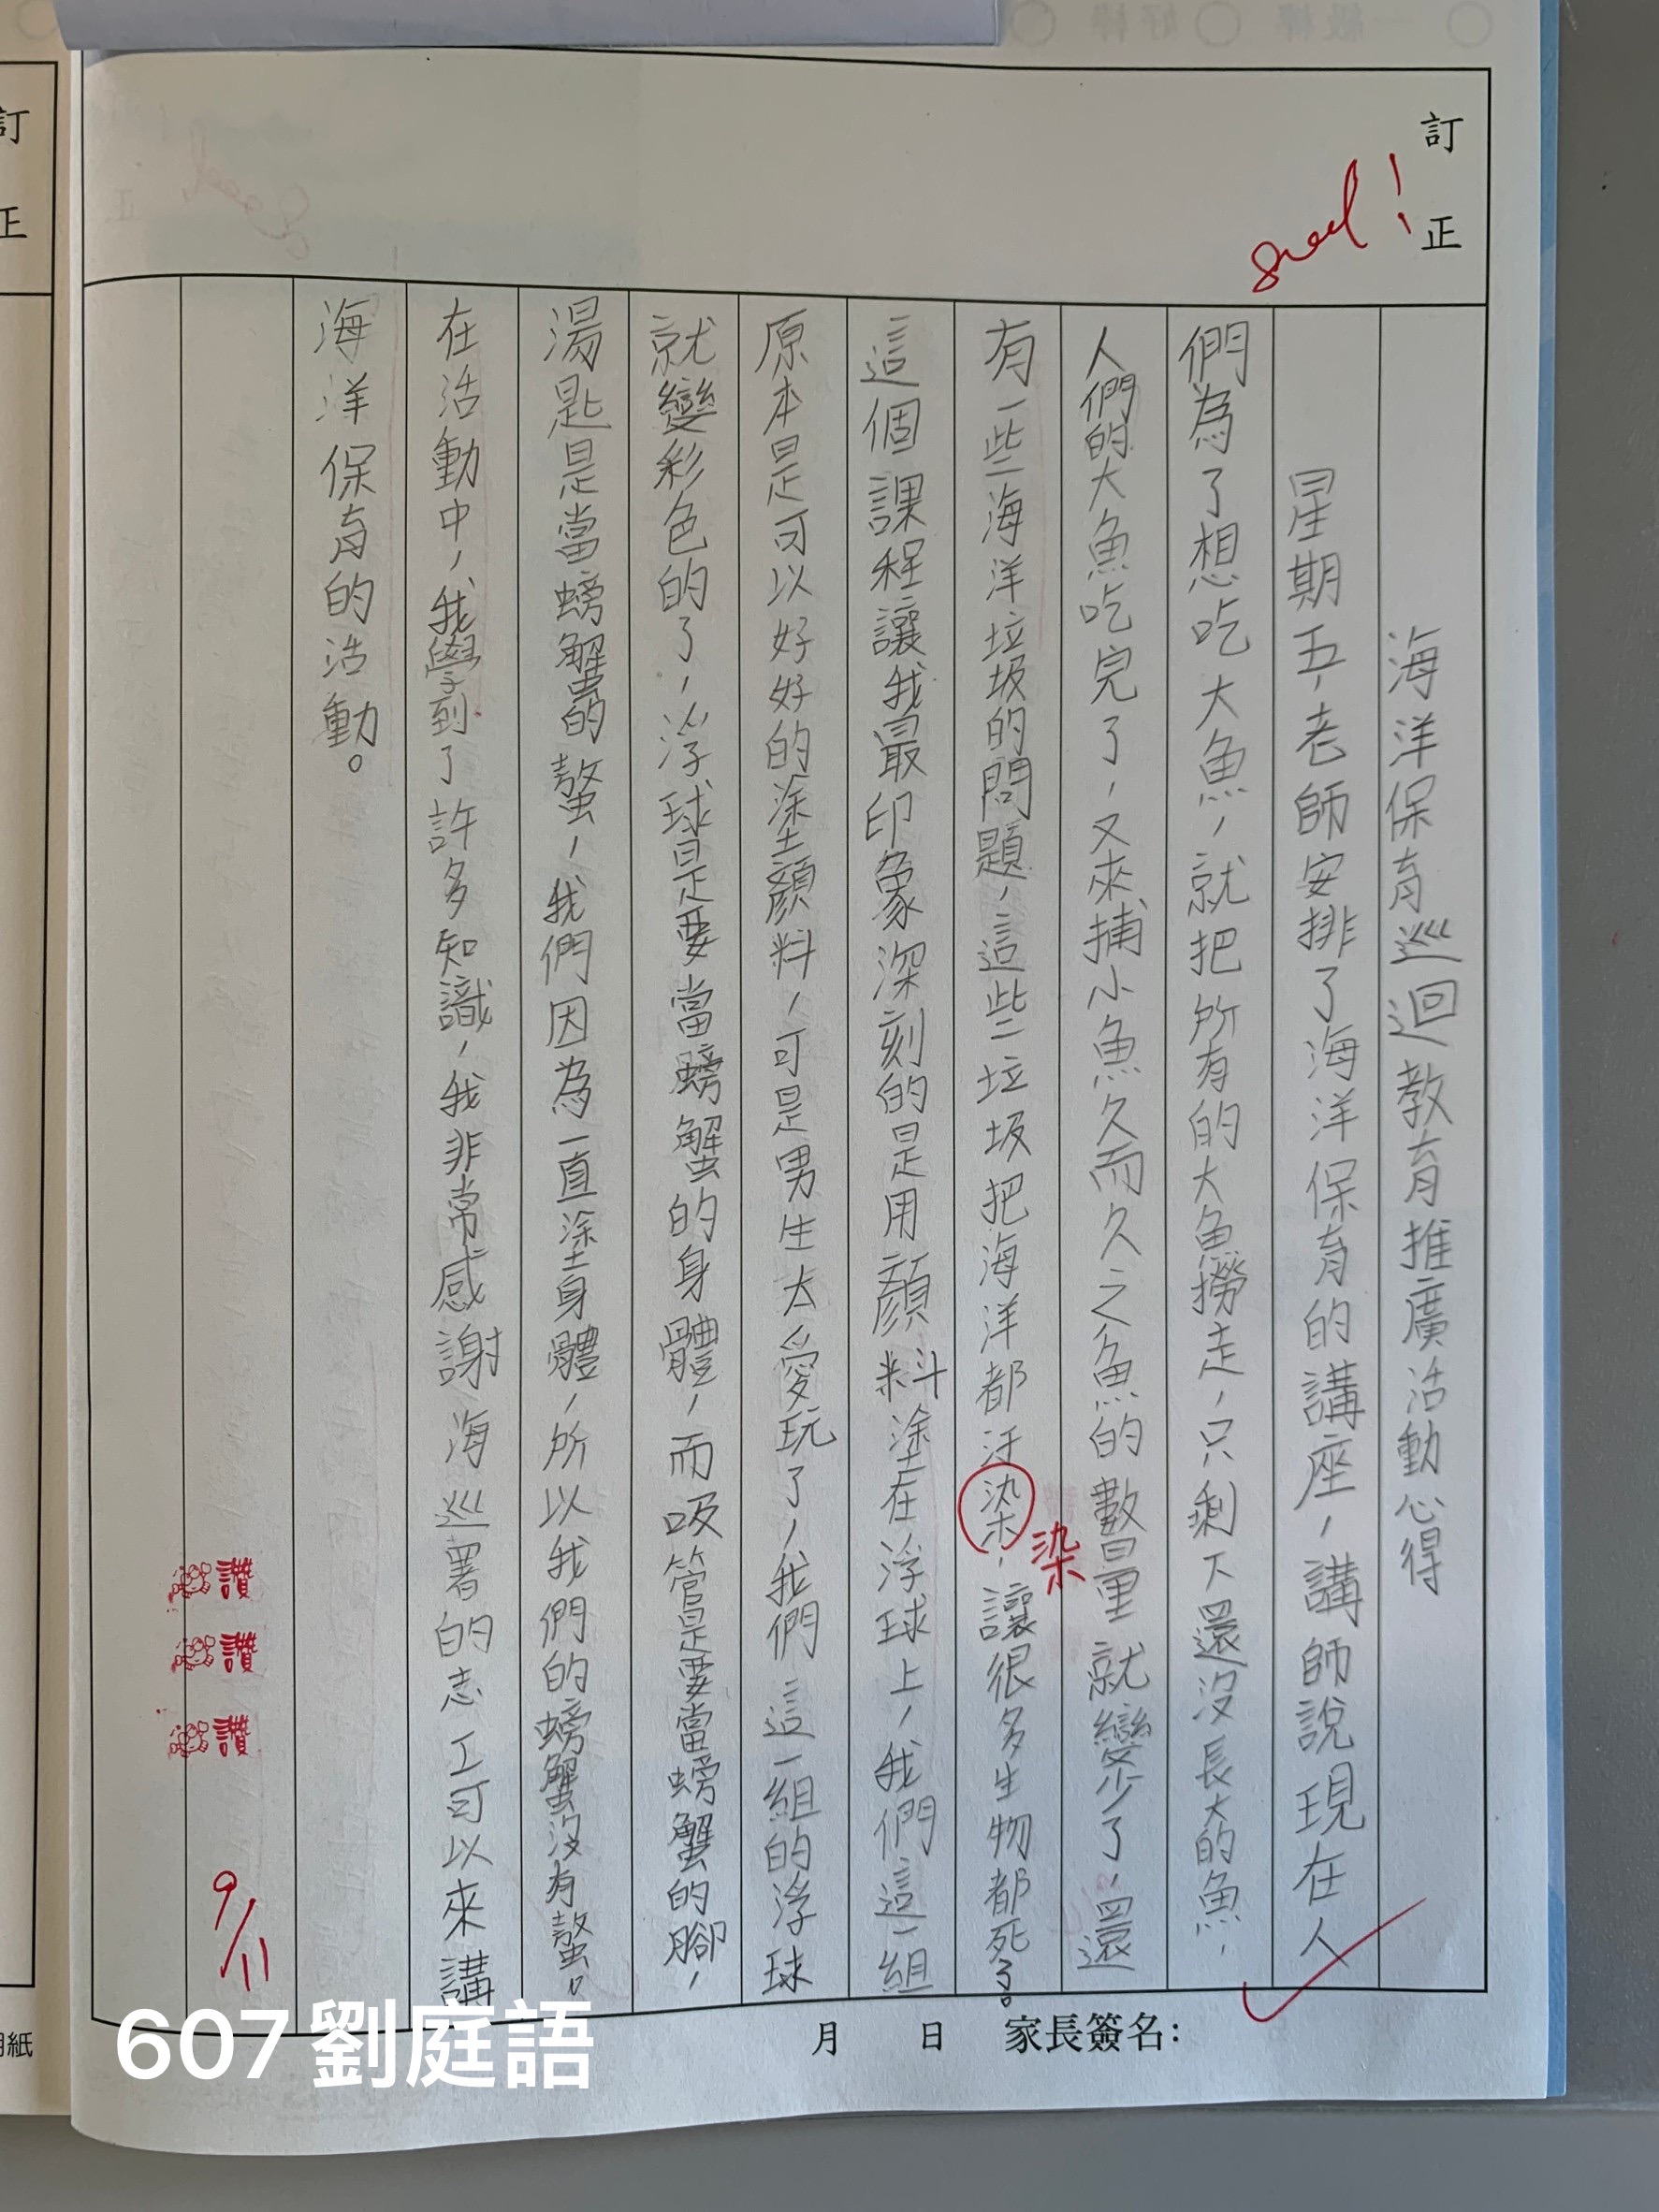 訂正
good!
海洋保育巡迴教育推廣活動心得
星期五,老師安排了海洋保育的講座,講師說現在人
們為了想吃大魚,就把所有的大魚撈走,只剩下還沒長大的魚,
人們的大魚吃完了,又來捕小魚久而久之魚的數量就變少了,還
有一些海洋垃圾的問題,這些垃圾把海洋都汙染,讓很多生物都死了。
染
這個課程讓我最印象深刻的是用顏料塗在浮球上,我們這一組
原本是可以好好的塗顏料,可是男生太愛玩了,我們這一組的浮球
就變彩色的了,浮球是要當螃蟹的身體,而吸管是要當螃蟹的腳,
湯匙是當螃蟹的螯,我們因為一直塗身體,所以我們的螃蟹沒有螯。
在活動中,我學到了許多知識,我非常感謝海巡署的志工可以來講
海洋保育的活動。
讚
讚
讚
9/11
月 日 家長簽名:
607劉庭語
訂正
用紙